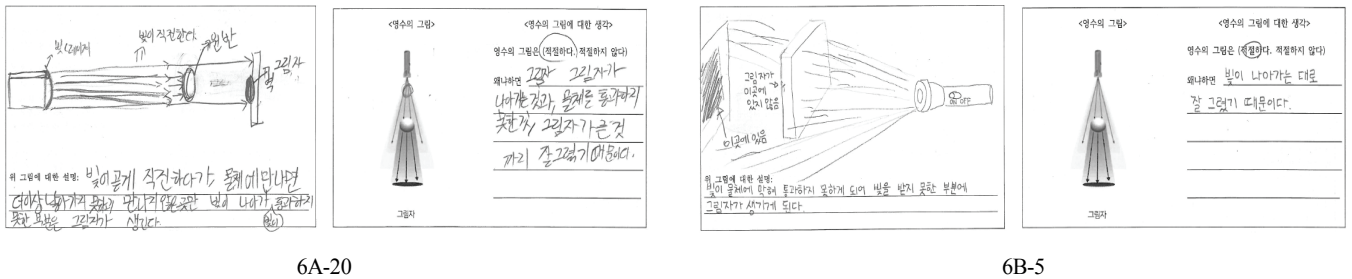 빛이 직전한다.
원반
그림자
벽
위 그림에 대한 설명: 빛이 곧게 직진하다가, 물체에 만나면
더이상 만나지 않은곳만 빛이 나아가 통과하지
못한 부분은 그림자가 생긴다.
빛이
<영수의 그림>
그림자
<영수의 그림에 대한 생각>
영수의 그림은 (적절하다. 적절하지 않다)
왜냐하면 그림자가
나아가는것과, 물체를 통과하지
못한것, 그림자가 큰 것
까지 잘그렸기 때문이다.
6A-20
그림자가
이곳에
있지 않음
이곳에 있음
ON OFF
위 그림에 대한 설명:
빛이 물체에 막혀 통과하지 못하게 되어 빛을 받지 못한 부분에
그림자가 생기게 된다.
<영수의 그림>
그림자
<영수의 그림에 대한 생각>
영수의 그림은 (적절하다. 적절하지 않다)
왜냐하면 빛이 나아가는 대로
잘 그렸기 때문이다.
6B-5